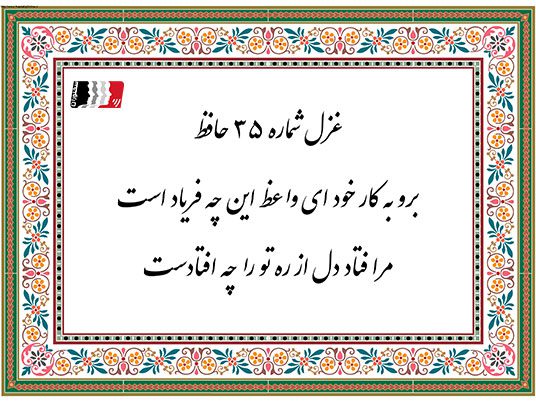 غزل شماره ۳۵ حافظ
برو به کار خود ای واعظ این چه فریاد است
مرا فتاد دل از ره تو را چه افتادست